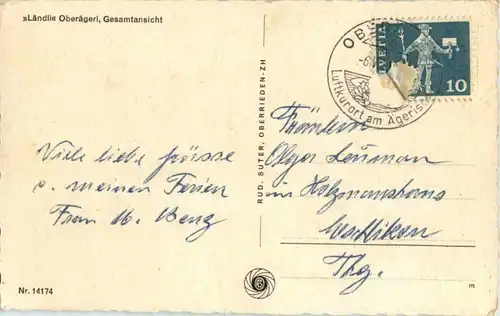 »Ländli« Oberägeri, Gesamtansicht
Viele liebe grüsse
a. meinen Ferien
Frau M. Benz
Nr. 14174
RUD. SUTER, OBERRIEDEN-ZH
Luftkurort am Ägeris
HELVETIA
10
Fräulein
Olga
im Holzmannshaus
Eschlikon
Thg.
m